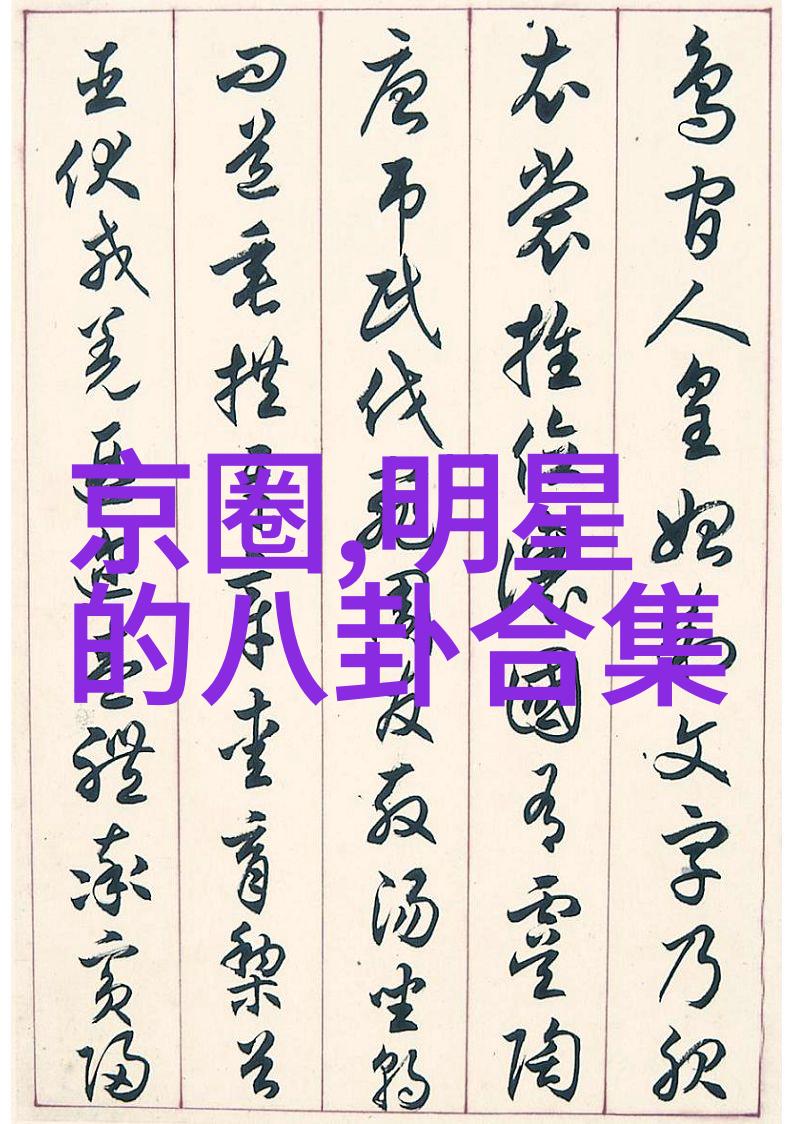 鳥官人皇始制文字乃服
衣裳推位讓國有虞陶
唐吊民伐罪周发殷汤坐朝
问道垂拱平章愛育黎首
臣伏戎羌遐迩壹體率賓歸
京圈,明星
的八卦合集